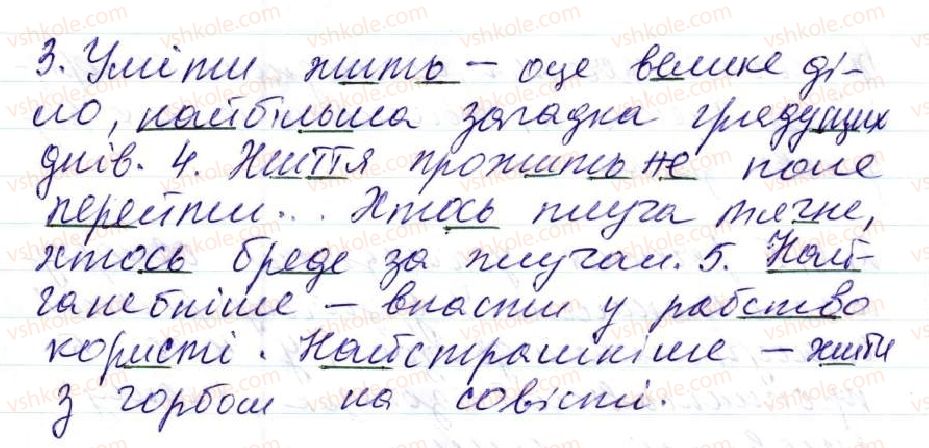 3. Уміти жить – оце велике ді-
ло, найбільша загадка грядущих
днів. 4. Життя прожить не поле
перейти... Хтось плуга тягне,
хтось бреде за плугам. 5. Най-
ганебніше – впасти у рабство
користі. Найстрашніше – жити
з горбом на совісті.